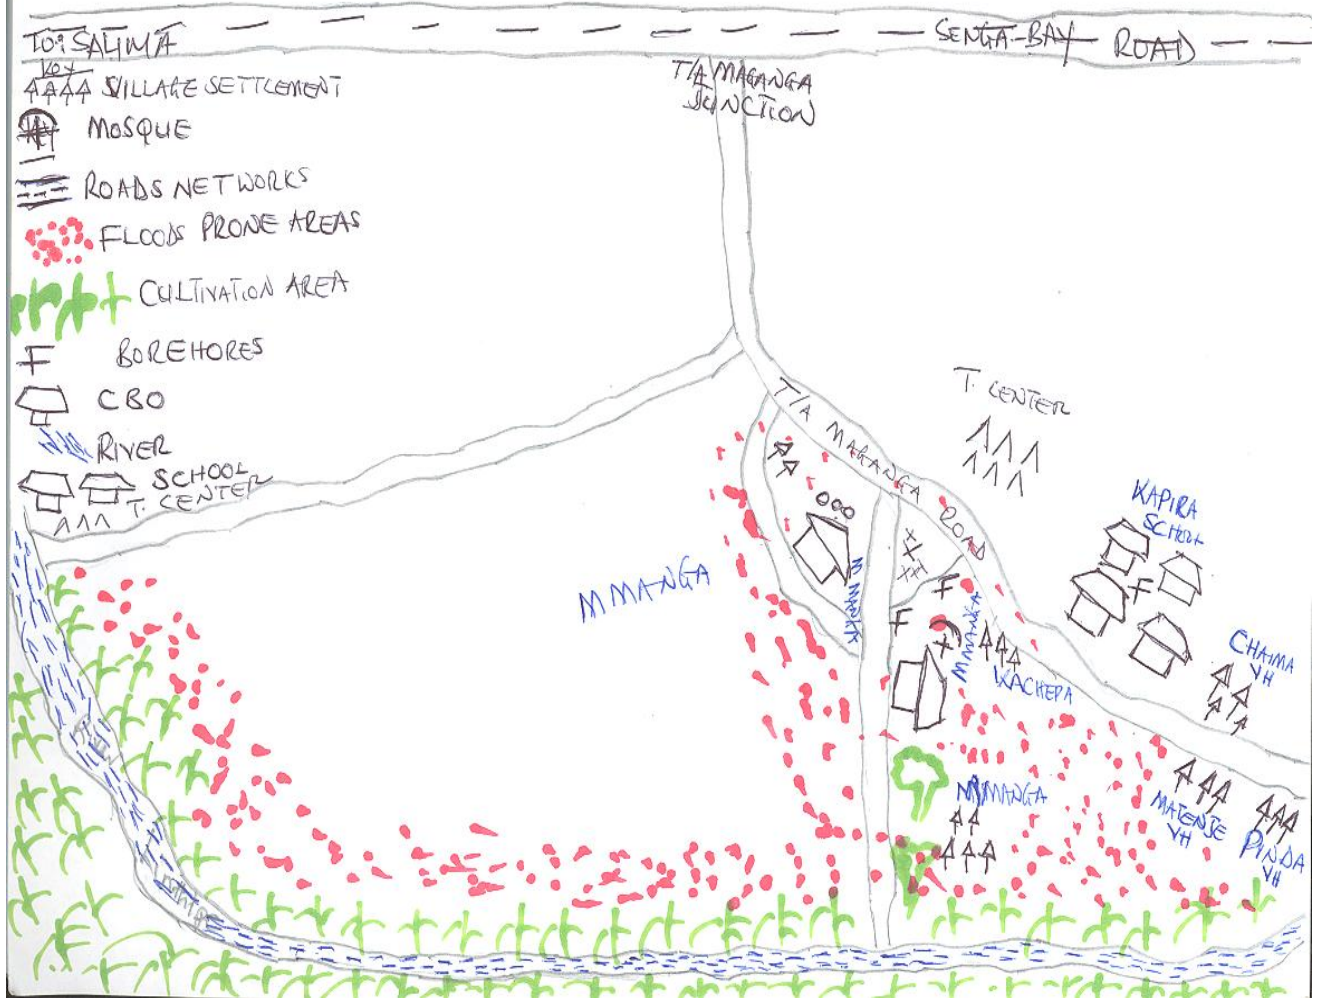 TO: SALIMA
SENGA-BAY ROAD
KEY
VILLAGE SETTLEMENT
MOSQUE
ROADS NETWORKS
FLOODS PRONE AREAS
CULTIVATION AREA
F BOREHORES
CBO
RIVER
SCHOOL
T. CENTER
T/A MAGANGA
JUNCTION
T/A MAGANGA ROAD
T. CENTER
KAPIRA
SCHOOL
F
CHAIMA
VH
MMANGA
F
F
MMANGA
KACHEPA
MMANGA
MATENJE
VH
PINDA
VH